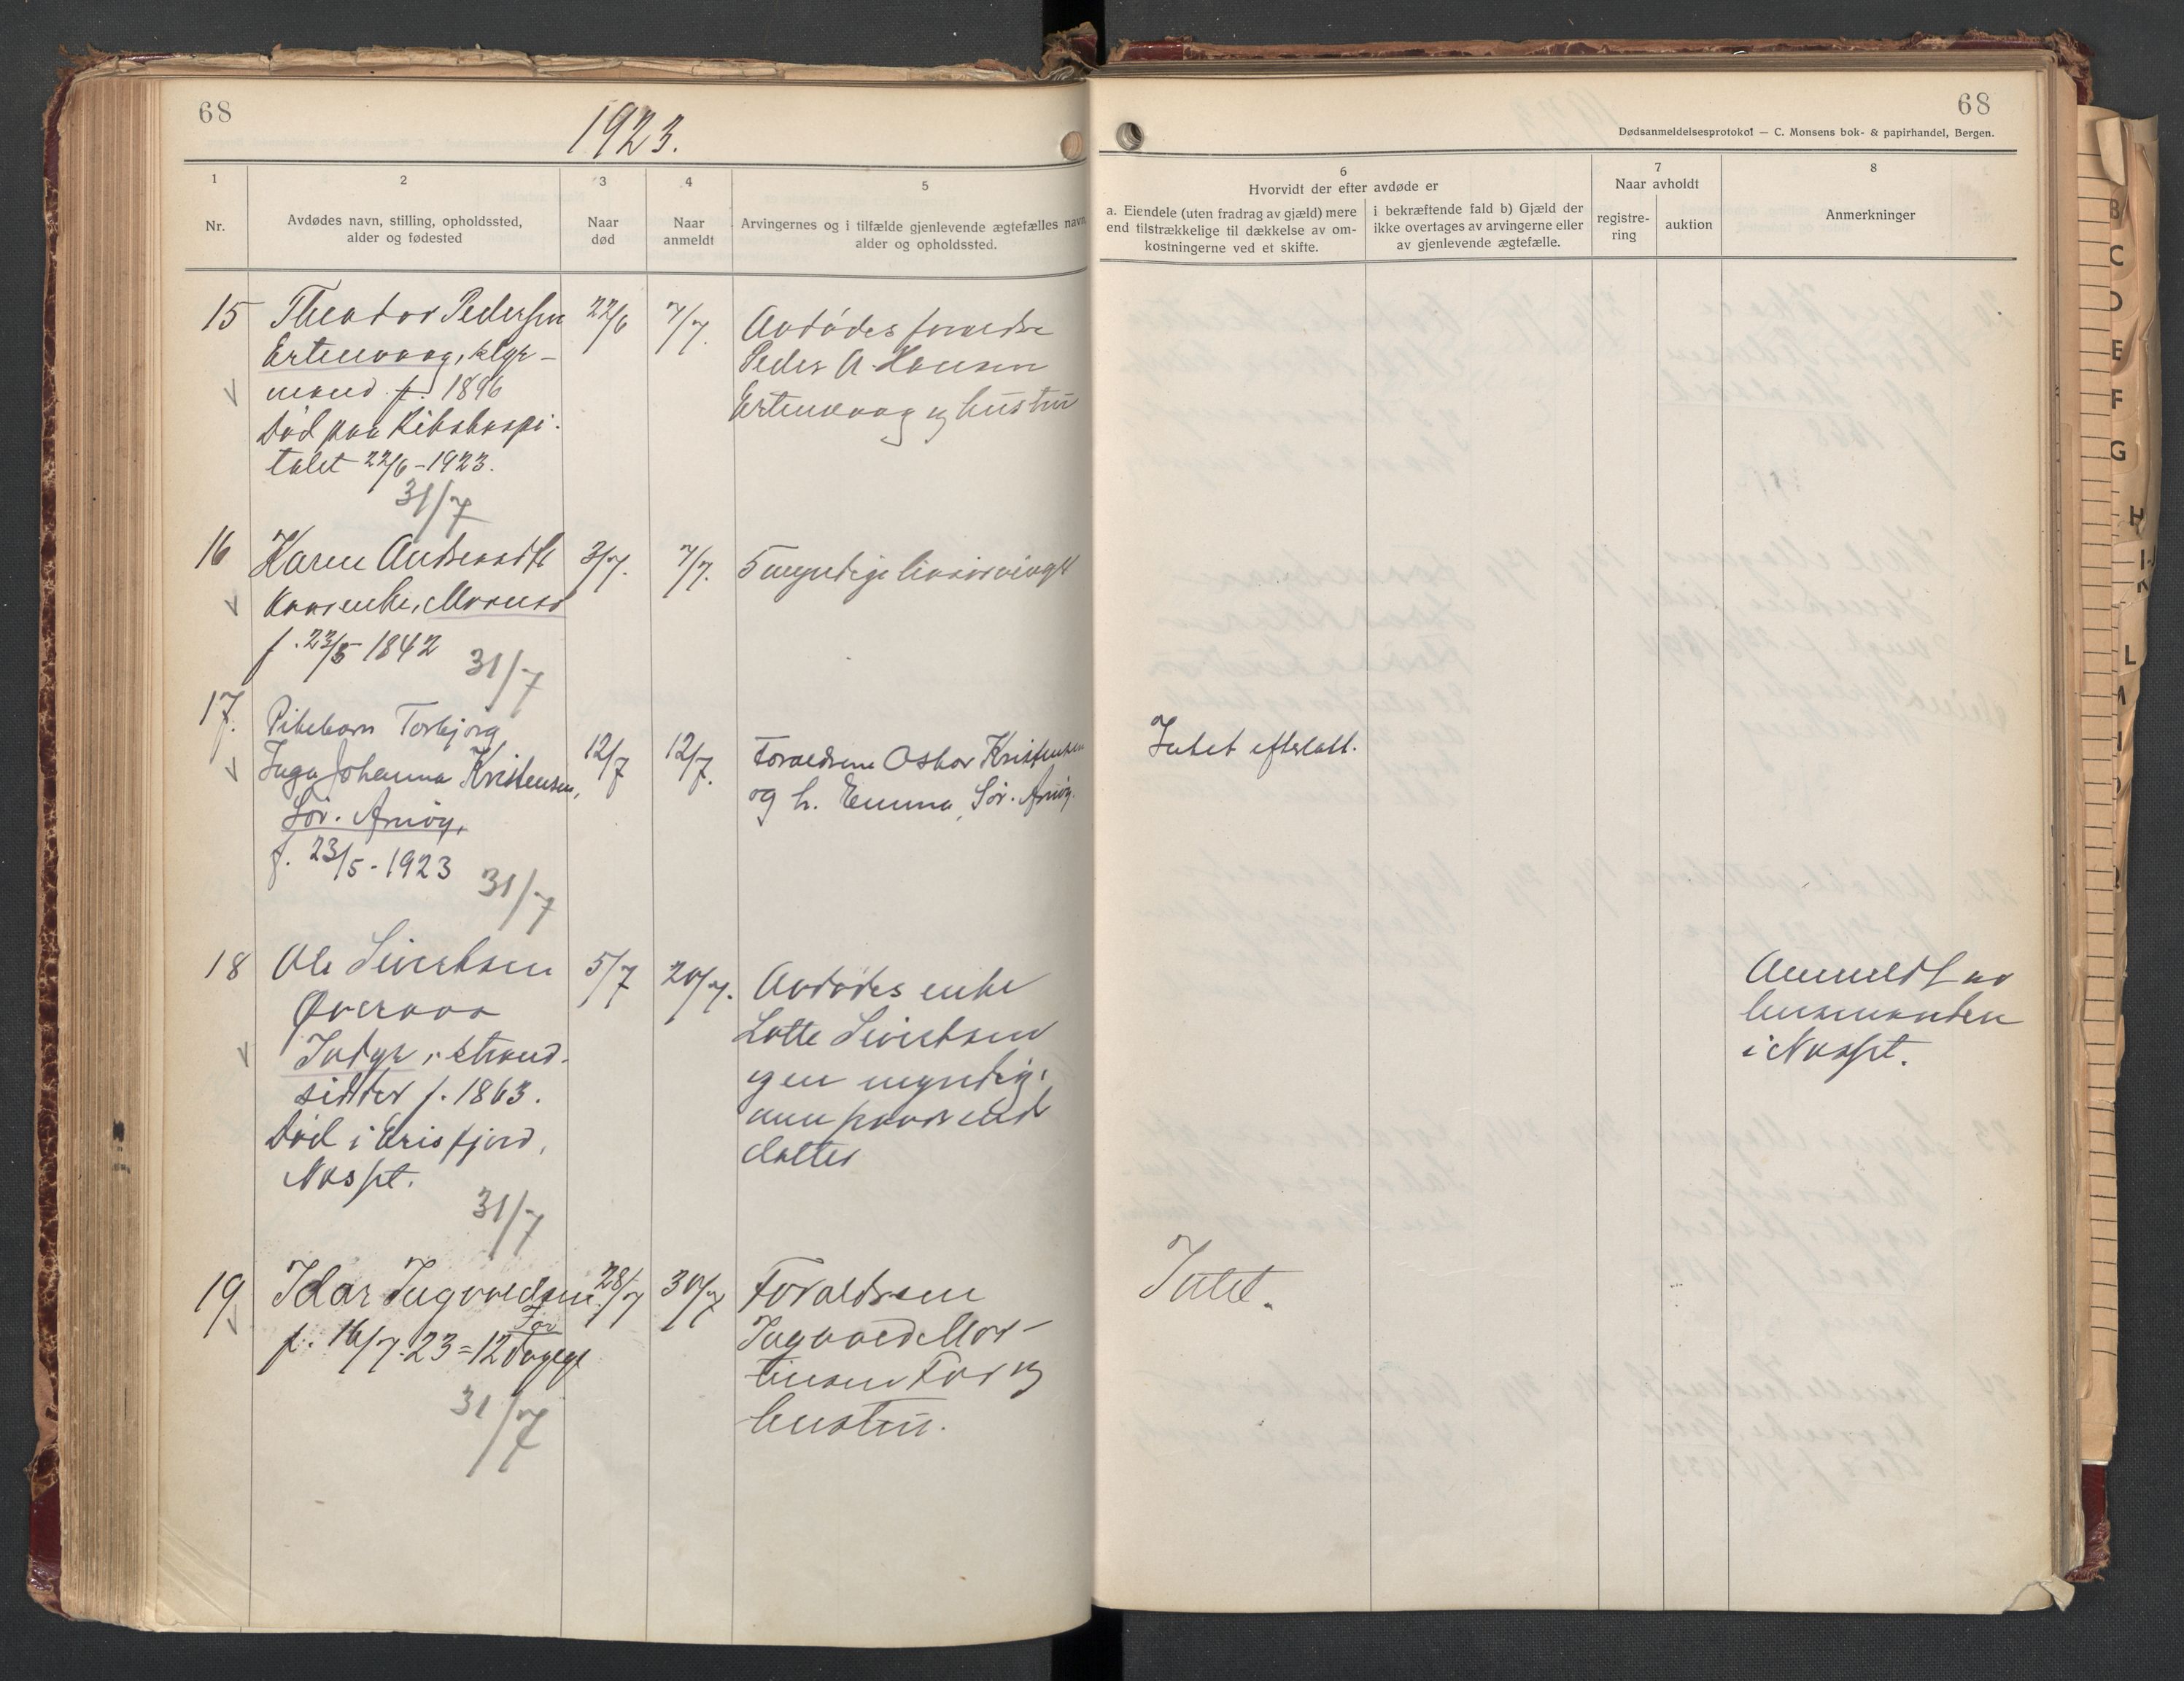 68
1923.
1
2
3
4
5
Nr.
Avdødes navn, stilling, opholdssted,
alder og fødested
Naar
død
Naar
anmeldt
Arvingernes og i tilfælde gjenlevende ægtefælles navn,
alder og opholdssted.
15
Theodor Pedersen
Ertenvaag, klgr-
mand f. 1896
Død paa Rikshospi-
talet 22/6-1923.
31/7
22/6
7/7.
Avdødes forældre
Peder A. Hansen
Ertenvaag og hustru
16
Karen Andersdtt
Kaarenke,
f. 23/5 1842
31/7
3/7.
7/7.
5 myndige livsarvinger
17.
Pikebarn Torbjørg
Inga Johanna Kristensen,
Sør. Arnøy,
f. 23/5-1923
31/7
12/7
12/7.
Forældrene Oskar Kristensen
og h. Emma, Sør. Arnøy.
18
Ole Sivertsen
Øveraas
Indyr, strand-
sidder f. 1863.
Død i Erisfjord,
Nesset.
31/7
5/7
20/7.
Avdødes enke
Lotte Sivertsen
og en myndig,
datter
19
Idar Ingvaldsen
For
f. 16/7-23 = 12 dage gl
31/7
28/7
30/7
Forældrene
Ingvald Mor-
tinsen For og
hustru.
68
Dødsanmeldelsesprotokol — C. Monsens bok- & papirhandel, Bergen.
6
Hvorvidt der efter avdøde er
a. Eiendele (uten fradrag av gjæld) mere
end tilstrækkelige til dækkelse av om-
kostningerne ved et skifte.
i bekræftende fald b) Gjæld der
ikke overtages av arvingerne eller
av gjenlevende ægtefælle.
7
Naar avholdt
registre-
ring
auktion
8
Anmerkninger
Intet efterlatt.
Anmeldt av
lensmanden
i Nesset.
Intet.